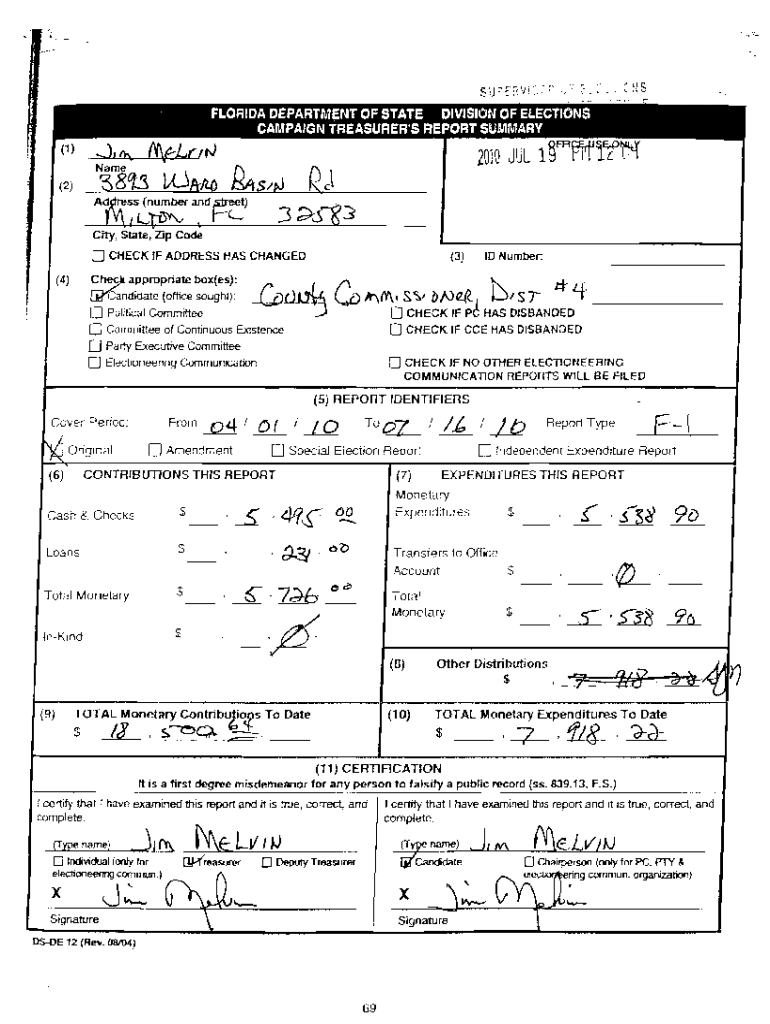 FLORIDA DEPARTMENT OF STATE DIVISION OF ELECTIONS
CAMPAIGN TREASURER'S REPORT SUMMARY
(1) Jim Melvin
Name
OFFICE USE ONLY
2010 JUL 19
(2) 3893 Ward Basin Rd
Address (number and street)
Milton, FL 32583
City, State, Zip Code
CHECK IF ADDRESS HAS CHANGED
(3) ID Number:
(4) Check appropriate box(es):
Candidate (office sought): County Commissioner, Dist #4
Political Committee CHECK IF PC HAS DISBANDED
Committee of Continuous Existence CHECK IF CCE HAS DISBANDED
Party Executive Committee
Electioneering Communication CHECK IF NO OTHER ELECTIONEERING
COMMUNICATION REPORTS WILL BE FILED
(5) REPORT IDENTIFIERS
Cover Period: From 04 / 01 / 10 To 07 / 16 / 10 Report Type F-1
X Original Amendment Special Election Report Independent Expenditure Report
(6) CONTRIBUTIONS THIS REPORT
Cash & Checks $ 5 , 495 . 00
Loans $ 231 . 00
Total Monetary $ 5 , 726 . 00
In-Kind $ 0
(7) EXPENDITURES THIS REPORT
Monetary
Expenditures $ 5 , 538 90
Transfers to Office
Account $ 0
Total
Monetary $ 5 , 538 90
(8) Other Distributions
$ 7 918 . 22
(9) TOTAL Monetary Contributions To Date
$ 18 , 500 . 64
(10) TOTAL Monetary Expenditures To Date
$ 7 , 918 . 22
(11) CERTIFICATION
It is a first degree misdemeanor for any person to falsify a public record (ss. 839.13, F.S.)
I certify that I have examined this report and it is true, correct, and
complete.
(Type name) Jim Melvin
Individual (only for Treasurer Deputy Treasurer
electioneering commun.)
X Jim Melvin
Signature
I certify that I have examined this report and it is true, correct, and
complete.
(Type name) Jim Melvin
Candidate Chairperson (only for PC, PTY &
electioneering commun. organization)
X Jim Melvin
Signature
DS-DE 12 (Rev. 08/04)
69